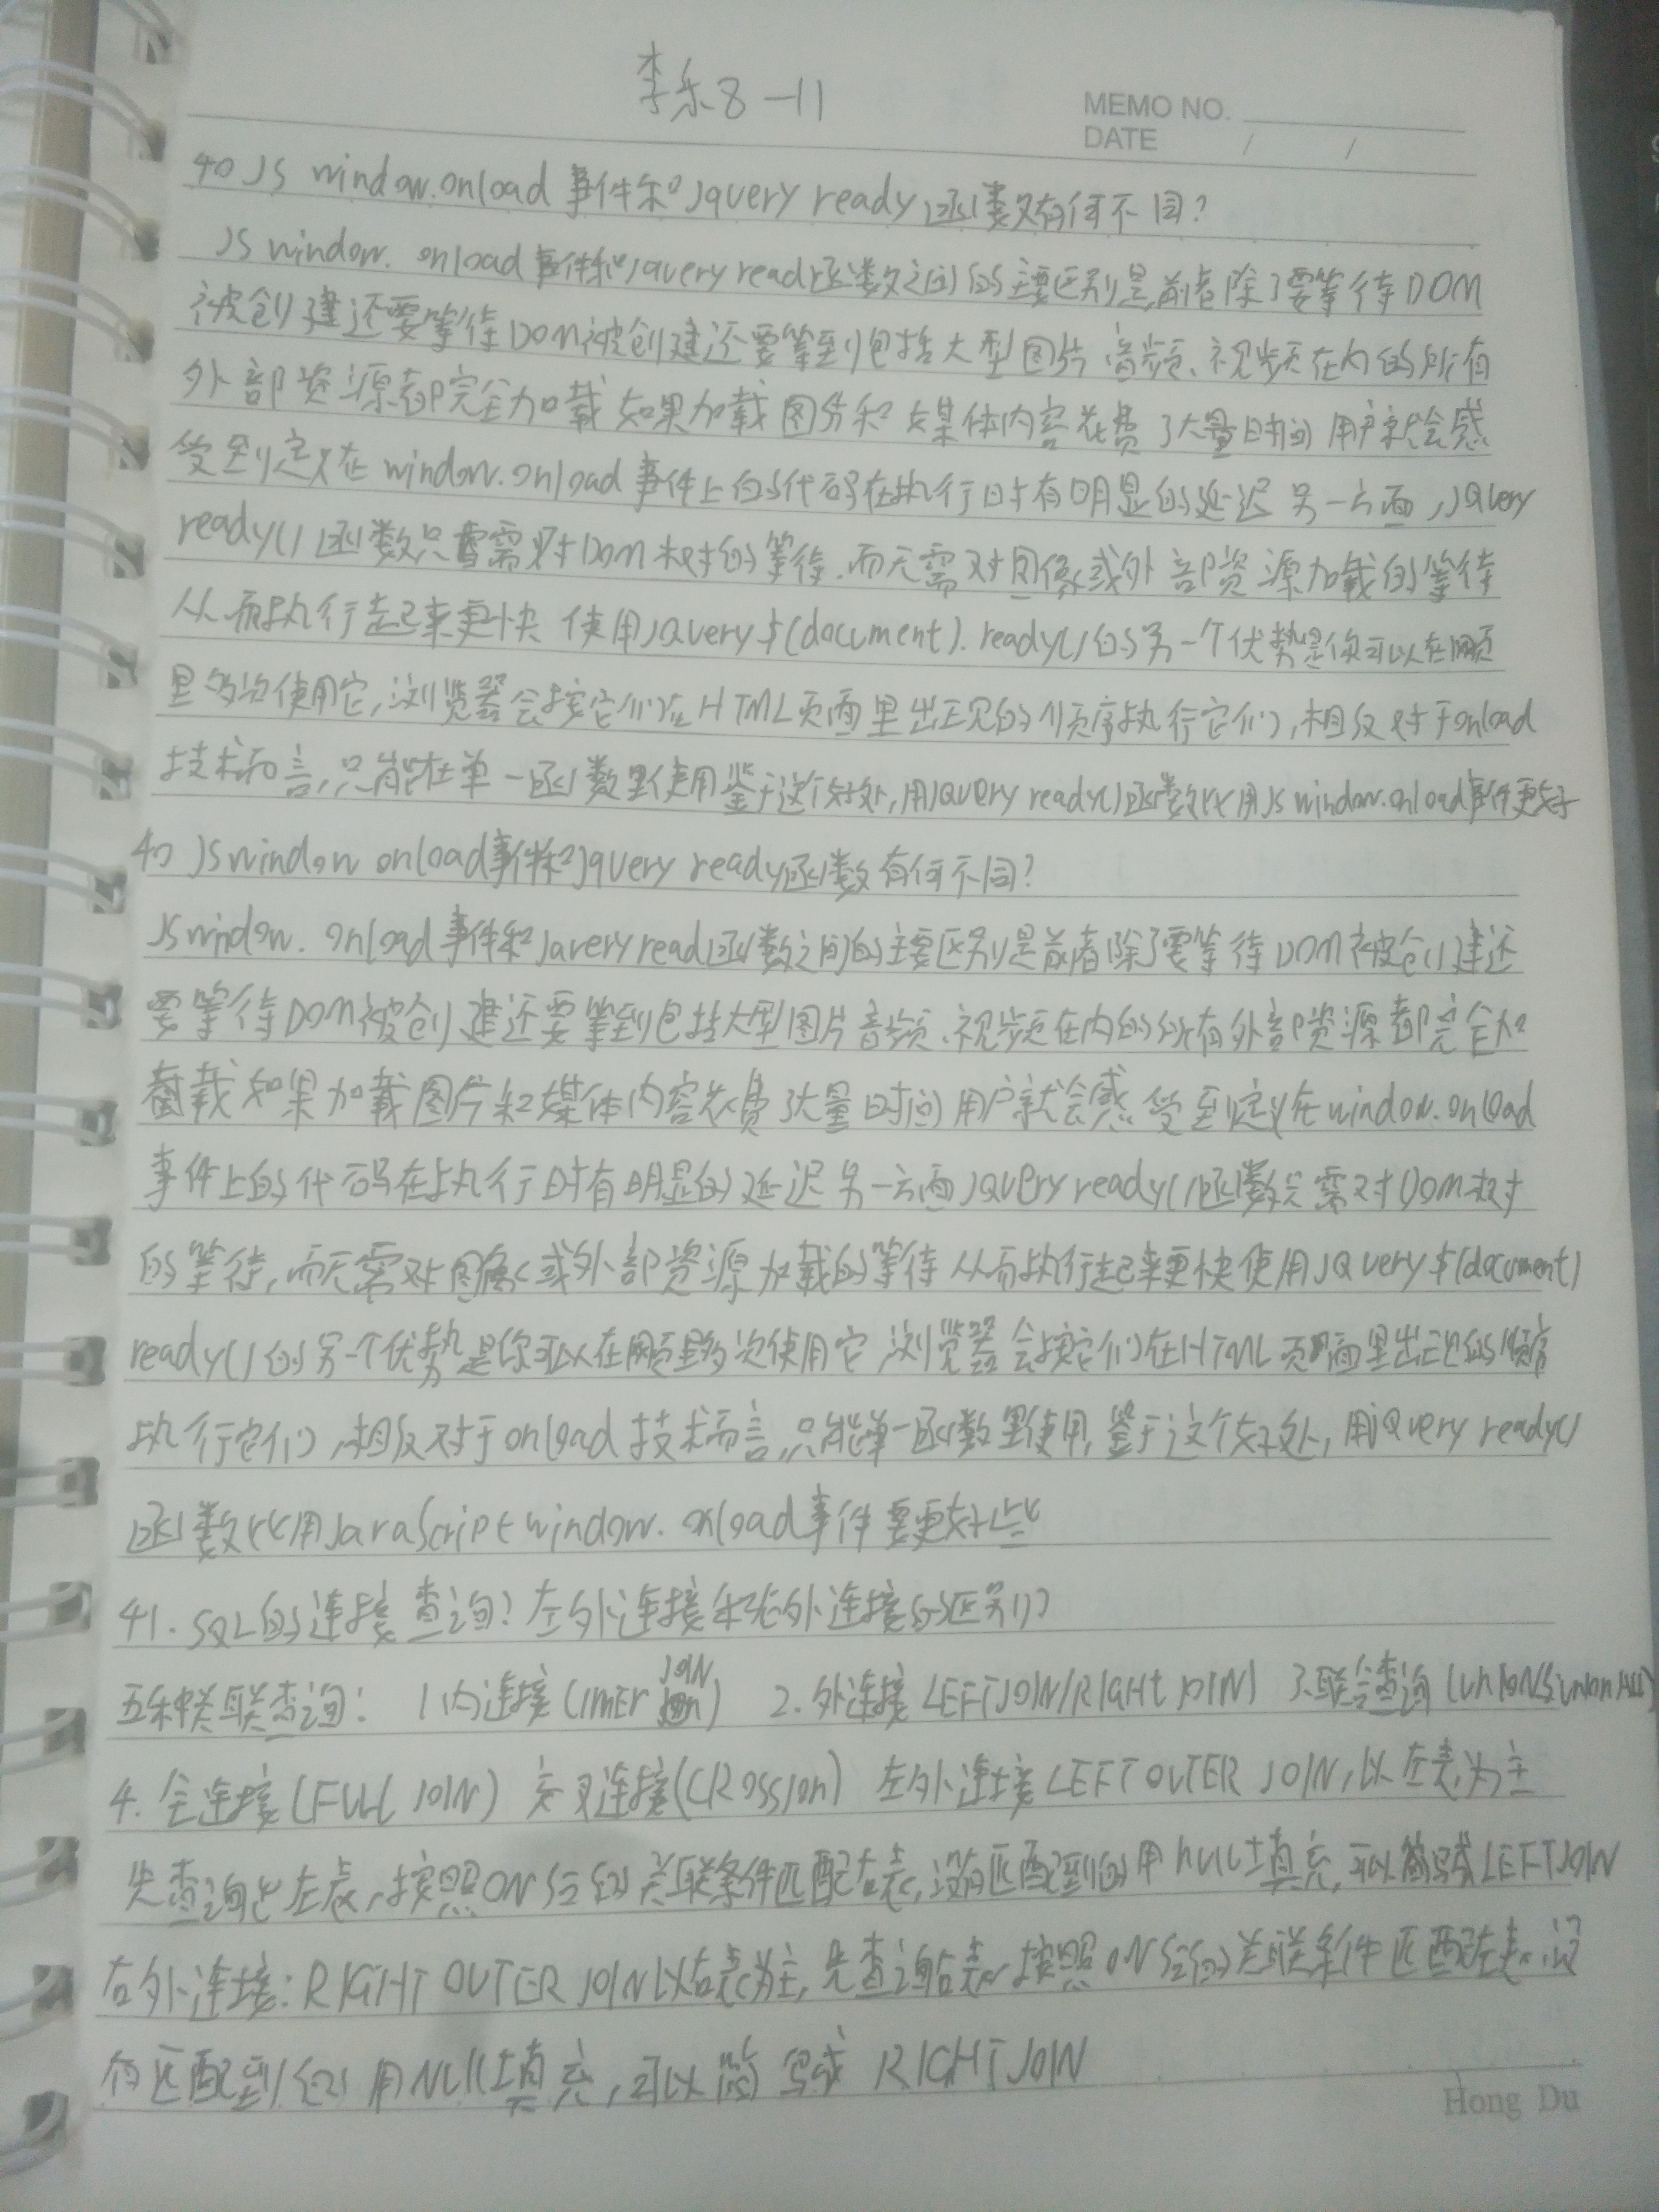 李乐8-11
MEMO NO.
DATE / /
40 JS window.onload 事件和Jquery ready函数有何不同?
JS window. onload 事件和Jquery read函数之间的主要区别是,前者除了要等待DOM
被创建还要等待DOM被创建还要等到包括大型图片、音频、视频在内的所有
外部资源都完全加载 如果加载图片和媒体内容花费了大量时间 用户就会感
受到定义在 window.onload 事件上的代码在执行时有明显的延迟 另一方面,JQuery
ready()函数只需对DOM树的等待.而无需对图像或外部资源加载的等待
从而执行起来更快 使用JQuery $(document).ready()的另一个优势是你可以在网页
里多次使用它,浏览器会按它们在HTML页面里出现的顺序执行它们,相反对于onload
技术而言,只能在单一函数里使用鉴于这个好处,用JQuery ready()函数比用JS window.onload事件更好
40 JS window onload事件和Jquery ready函数有何不同?
JS window. onload 事件和Jquery read函数之间的主要区别是前者除了要等待DOM被创建还
要等待DOM被创建还要等到包括大型图片音频、视频在内的所有外部资源都完全加
载 如果加载图片和媒体内容花费了大量时间 用户就会感受到定义在window.onload
事件上的代码在执行时有明显的延迟另一方面JQuery ready()函数只需对DOM树
的等待,而无需对图像或外部资源加载的等待 从而执行起来更快使用JQuery $(document)
ready()的另一个优势是你可以在网页里多次使用它,浏览器会按它们在HTML页面里出现的顺序
执行它们,相反对于onload技术而言,只能单一函数里使用,鉴于这个好处,用jQuery ready()
函数比用JavaScript window.onload事件要更好些
41. SQL的连接查询?左外连接和右外连接的区别?
五种关联查询: 1内连接(INNER JOIN) 2.外连接 LEFT JOIN/RIGHt JOIN) 3.联合查询(UNION与UNION ALL)
4. 全连接(FULL JOIN) 交叉连接(CROSS JOIN) 左外连接LEFT OUTER JOIN,以左表为主
先查询出左表,按照ON后的关联条件匹配右表,没有匹配到的用null填充,可以简写成LEFT JOIN
右外连接:RIGHT OUTER JOIN以右表为主,先查询右表,按照ON后的关联条件匹配左表,没
有匹配到的用NUll填充,可以简写成 RIGHT JOIN
Hong Du